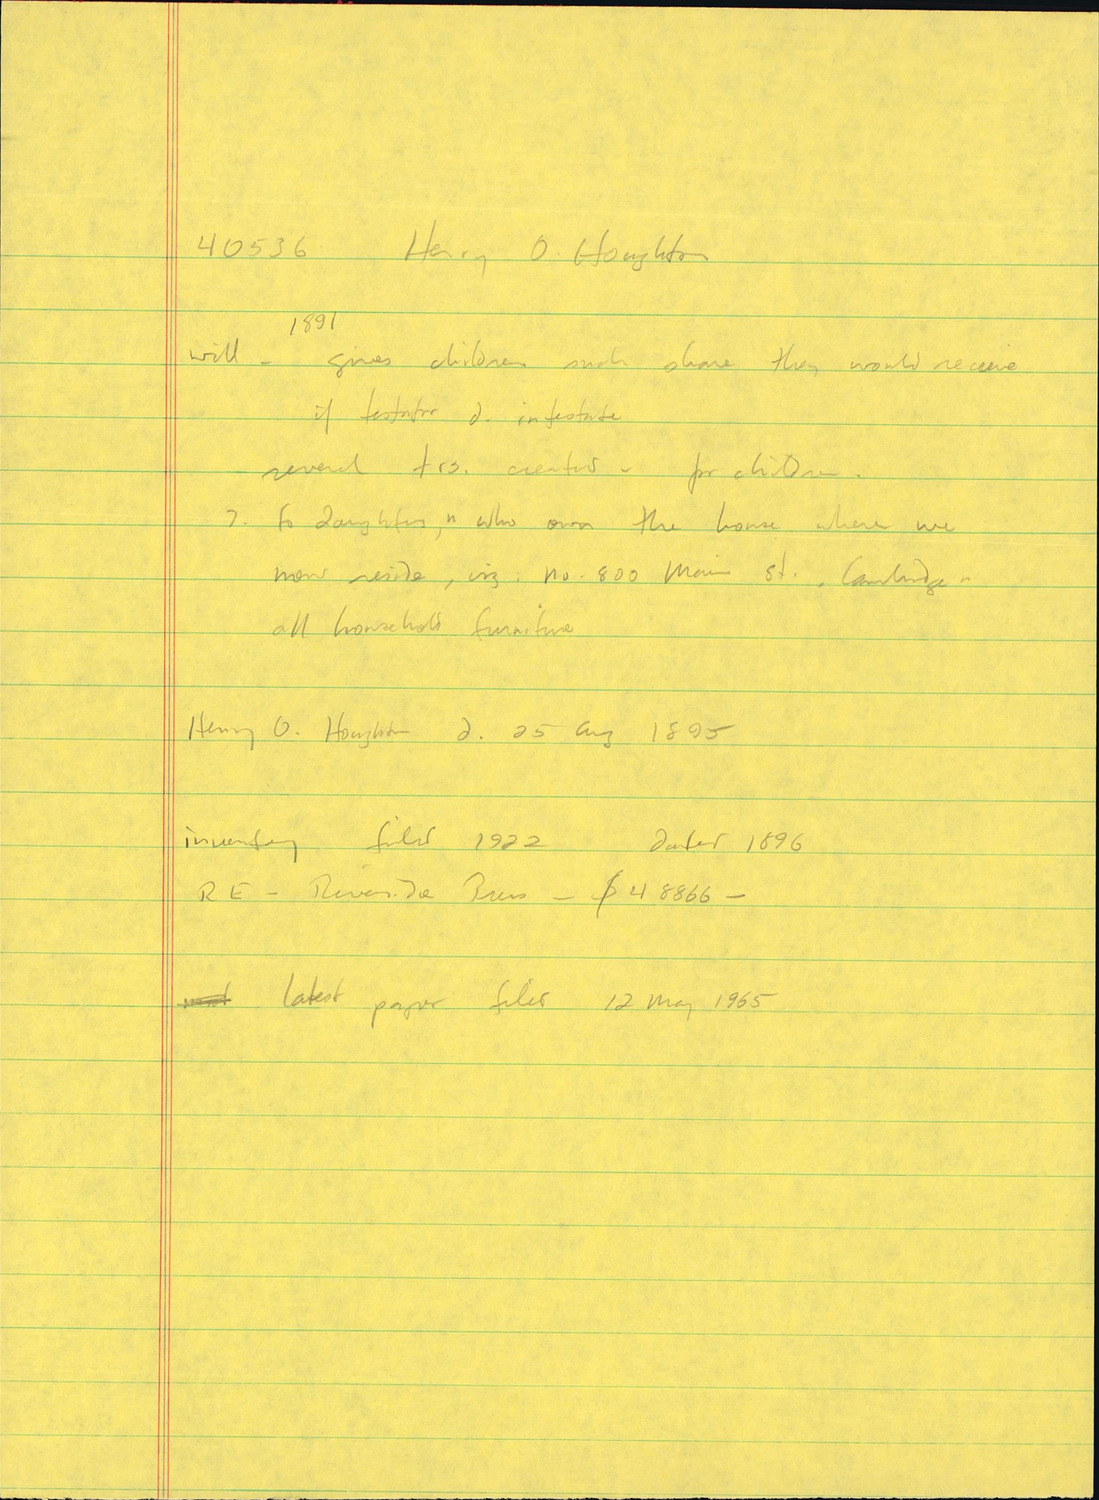 40536 Henry O. Houghton
1891
will - gives children such share they would receive
if testator d. intestate
several trs. created - for children.
7. to daughters, "who own the house where we
now reside, viz: no. 800 Main St., Cambridge"
all household furniture
Henry O. Houghton d. 25 Aug 1895
inventory filed 1922 dated 1896
RE - Riverside Press - $48866 -
latest paper filed 12 May 1965